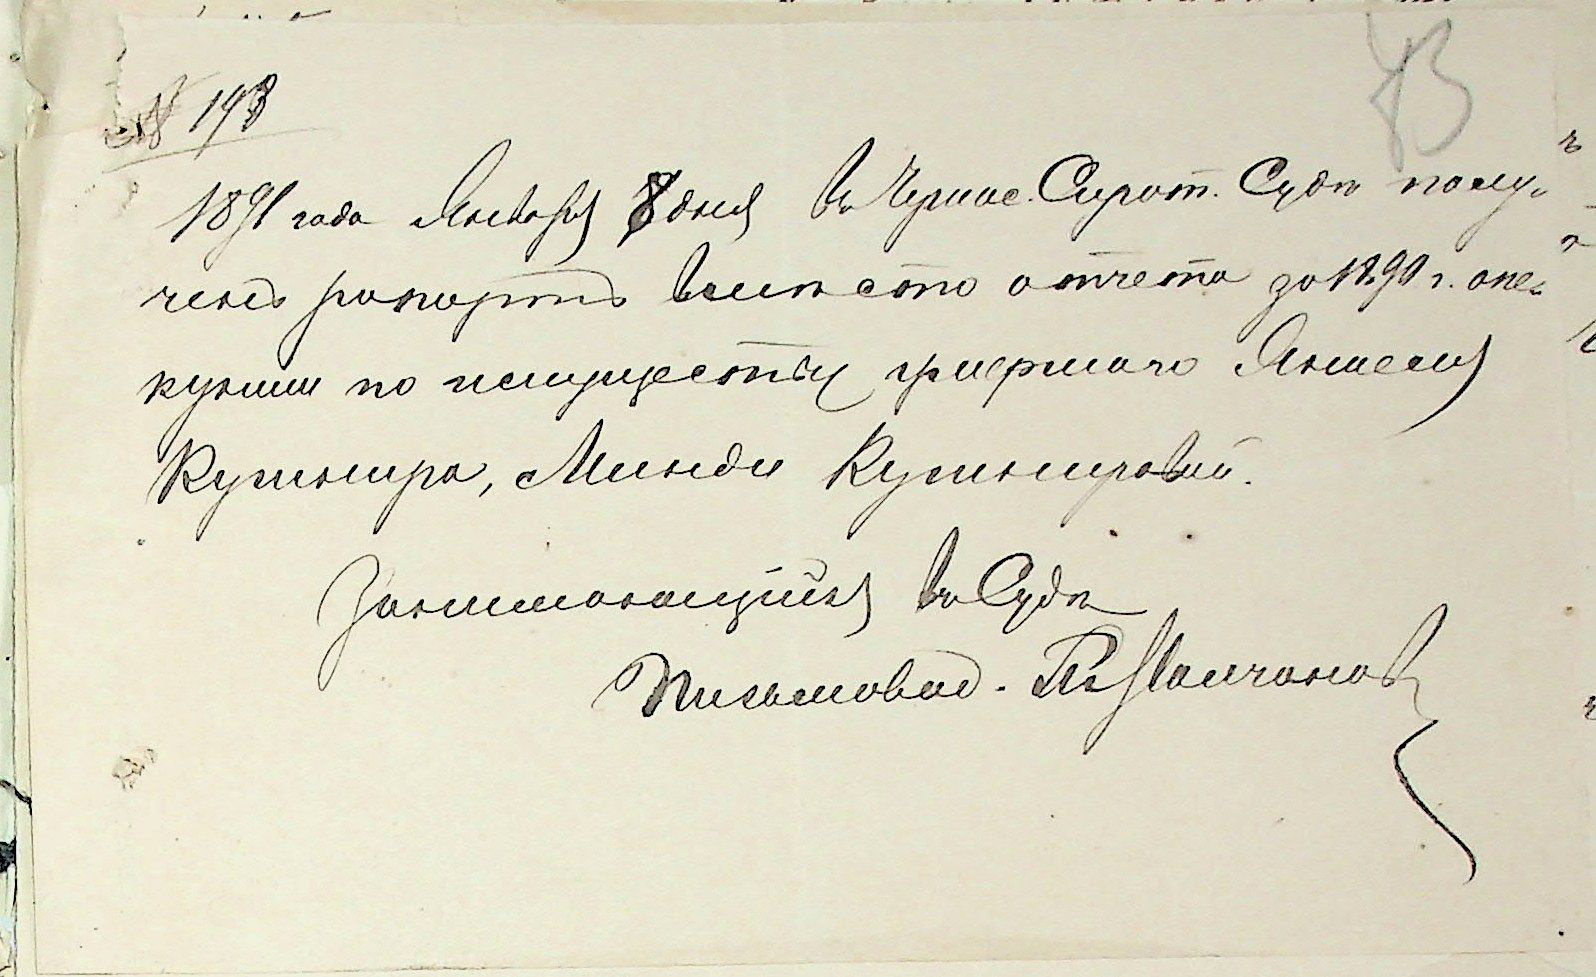 43
№ 193
1891 года Января 8 дня въ Черкас. Сирот. Судѣ полу-
ченъ рапортъ вмѣсто отчета за 1890 г. опе-
кунши по имуществу умершаго Яншеля
Кушнира, Минди Кушнировой.
Занимающійся въ Судѣ
Письмовод.